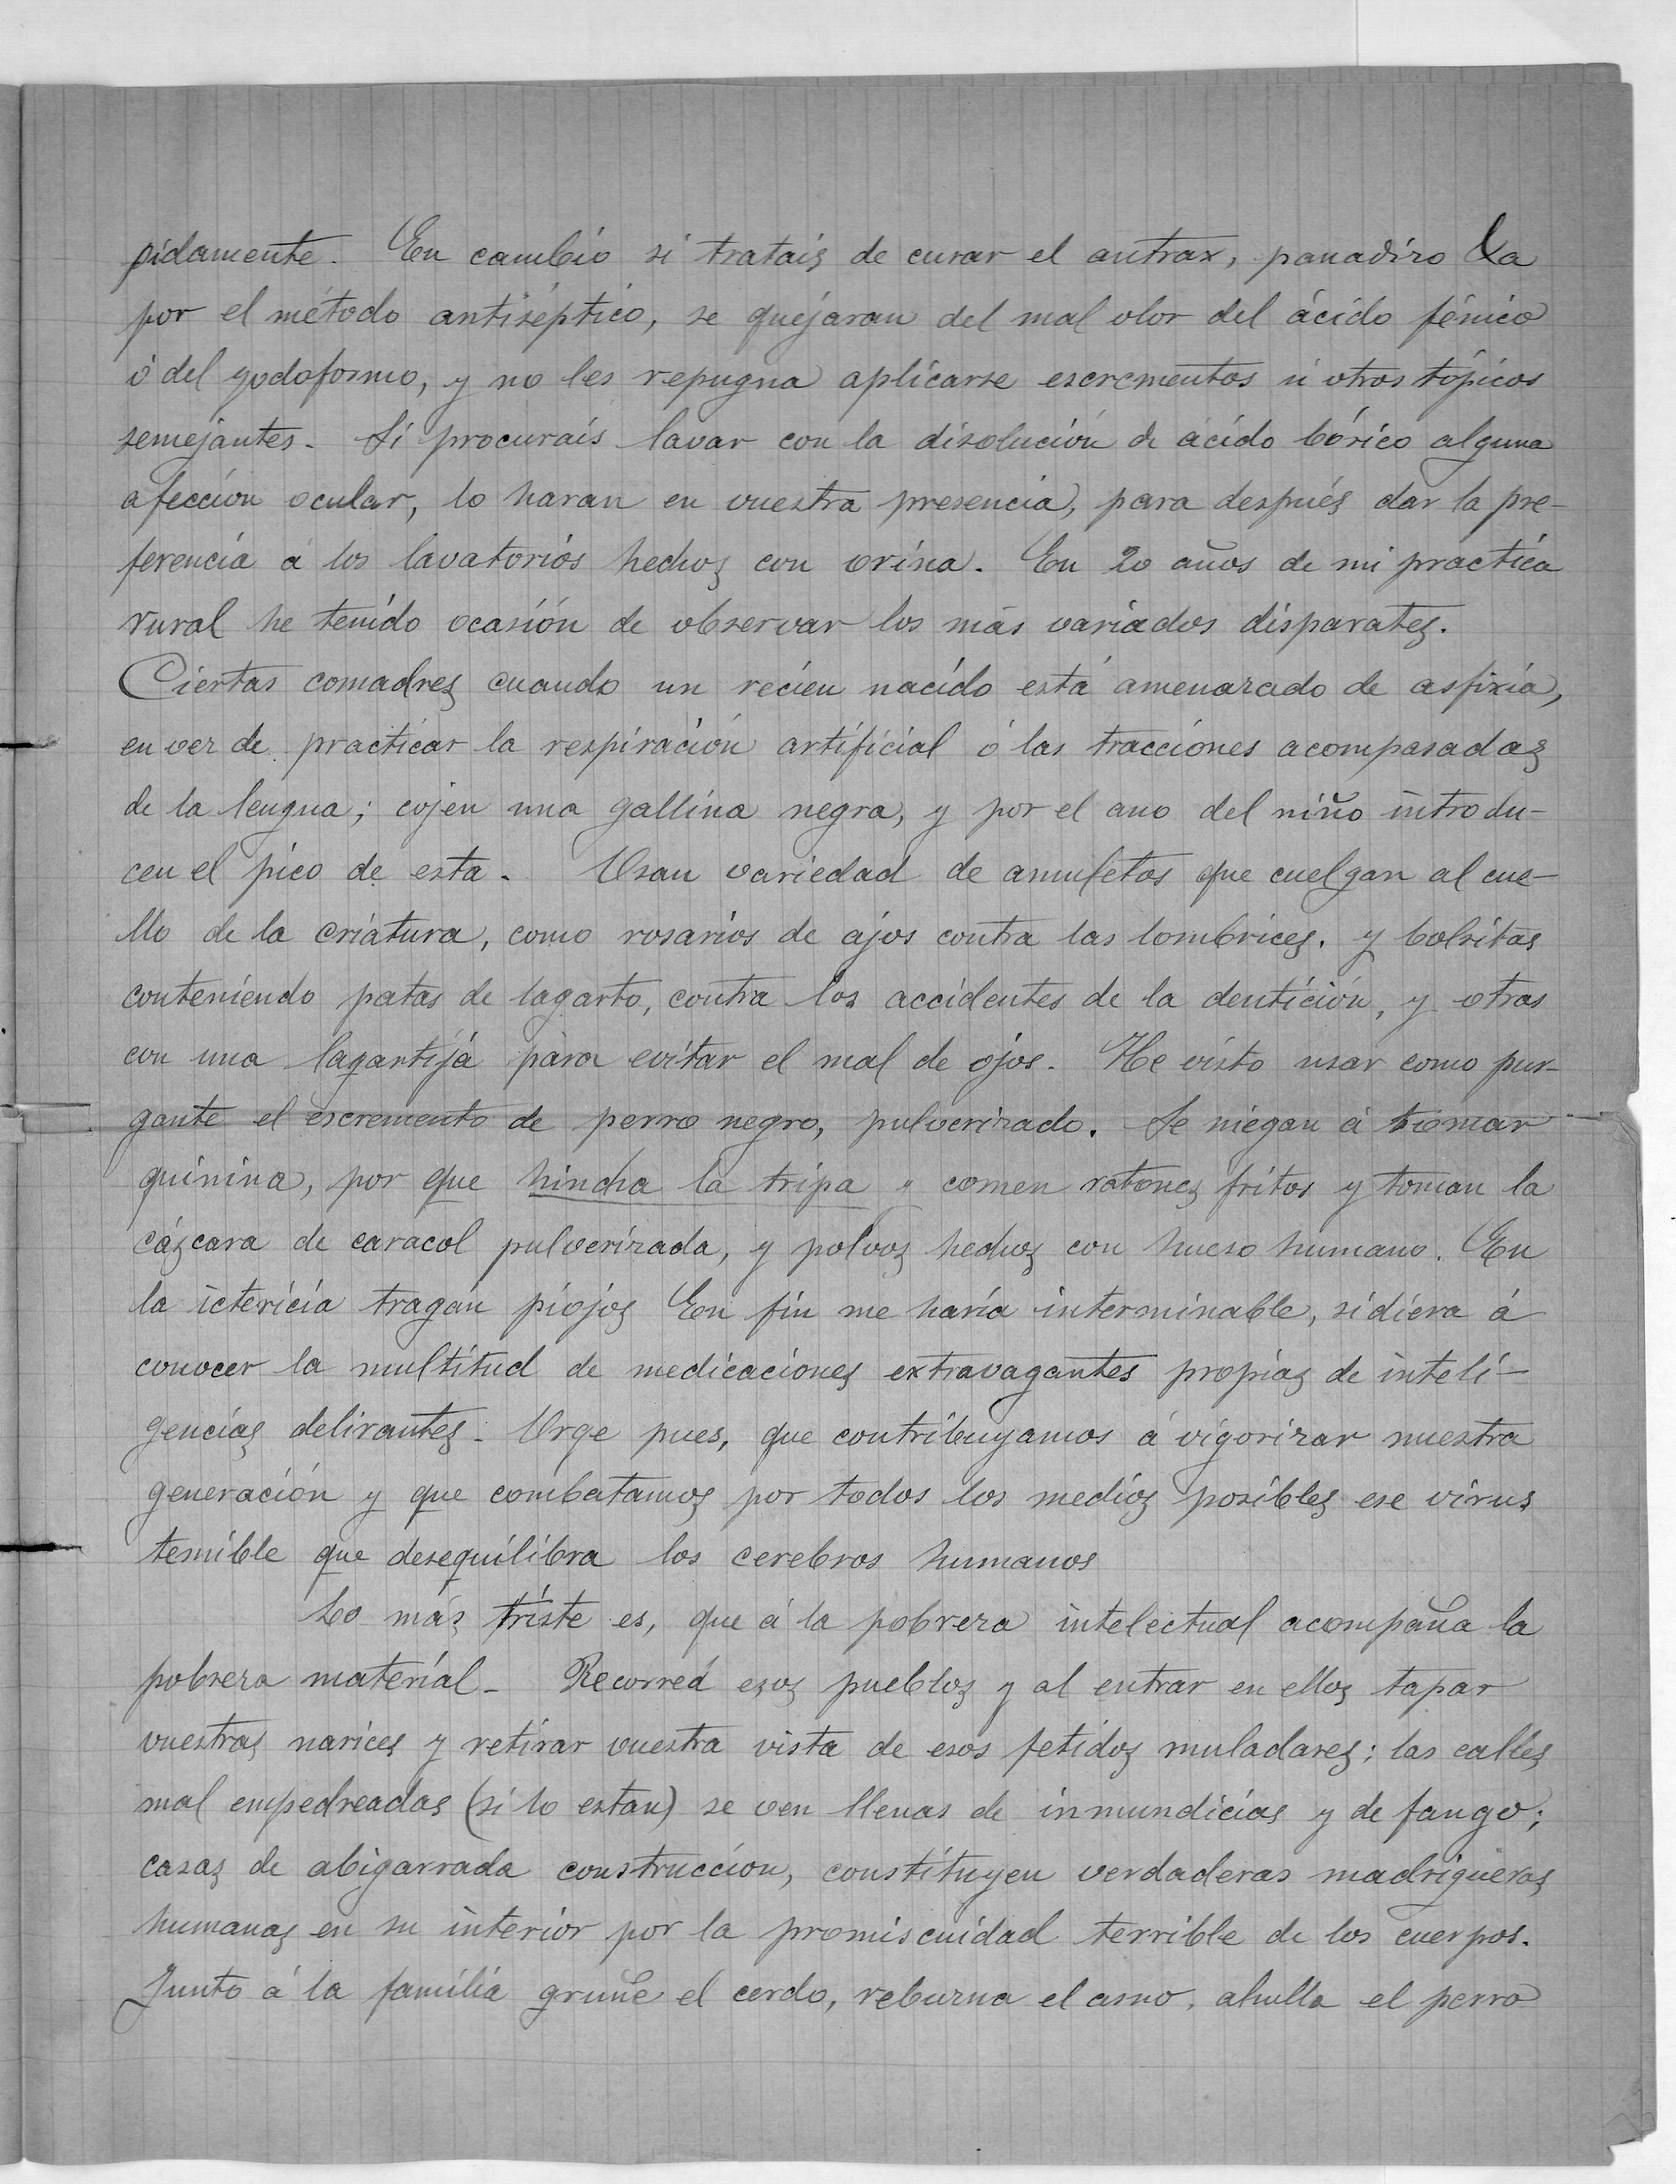 pidamente. En cambio si tratais de curar el antrax, panadizo &a
por el método antiséptico, se quejaran del mal olor del ácido fénico
ó del yodoformo, y no les repugna aplicarse escrementos ú otros tópicos
semejantes. Si procurais lavar con la disolución de ácido bórico alguna
afección ocular, lo haran en vuestra presencia, para después dar la pre-
ferencia á los lavatorios hechos con orina. En 20 años de mi practica
rural he tenido ocasión de observar los más variados disparates.
Ciertas comadres cuando un recien nacido está amenazado de asfixia,
en vez de practicar la respiración artificial ó las tracciones acompasadas
de la lengua; cojen una gallina negra, y por el ano del niño introdu-
cen el pico de esta. Usan variedad de amuletos que cuelgan al cue-
llo de la criatura, como rosarios de ajos contra las lombrices, y bolsitas
conteniendo patas de lagarto, contra los accidentes de la dentición, y otras
con una lagartija para evitar el mal de ojos. He visto usar como pur-
gante el escremento de perro negro, pulverizado. Se niegan á tomar
quinina, por que hincha la tripa y comen ratones fritos y toman la
cáscara de caracol pulverizada, y polvos hechos con hueso humano. En
la ictericia tragan piojos En fin me haría interminable, si diera á
conocer la multitud de medicaciones extravagantes propias de inteli-
gencias delirantes. Urge pues, que contribuyamos á vigorizar nuestra
generación y que combatamos por todos los medios posibles ese virus
temible que desequilibra los cerebros humanos
Lo más triste es, que á la pobreza intelectual acompaña la
pobreza material. Recorred esos pueblos y al entrar en ellos tapar
vuestras narices y retirar vuestra vista de esos fetidos muladares; las calles
mal empedreadas (si lo estan) se ven llenas de inmundicias y de fango;
casas de abigarrada construcción, constituyen verdaderas madrigueras
humanas en su interior por la promiscuidad terrible de los cuerpos.
Junto á la familia gruñe el cerdo, rebuzna el asno, ahulla el perro